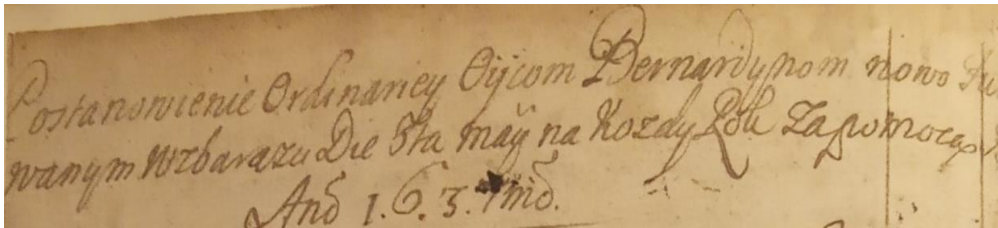 Postanowienie Ordinaney Oijcom Bernardynom nowo Fu
wanym w Zbarazu Die 5ta maij na Kozdy Rok Zapomocą
Anō 1.6.3.7mō.